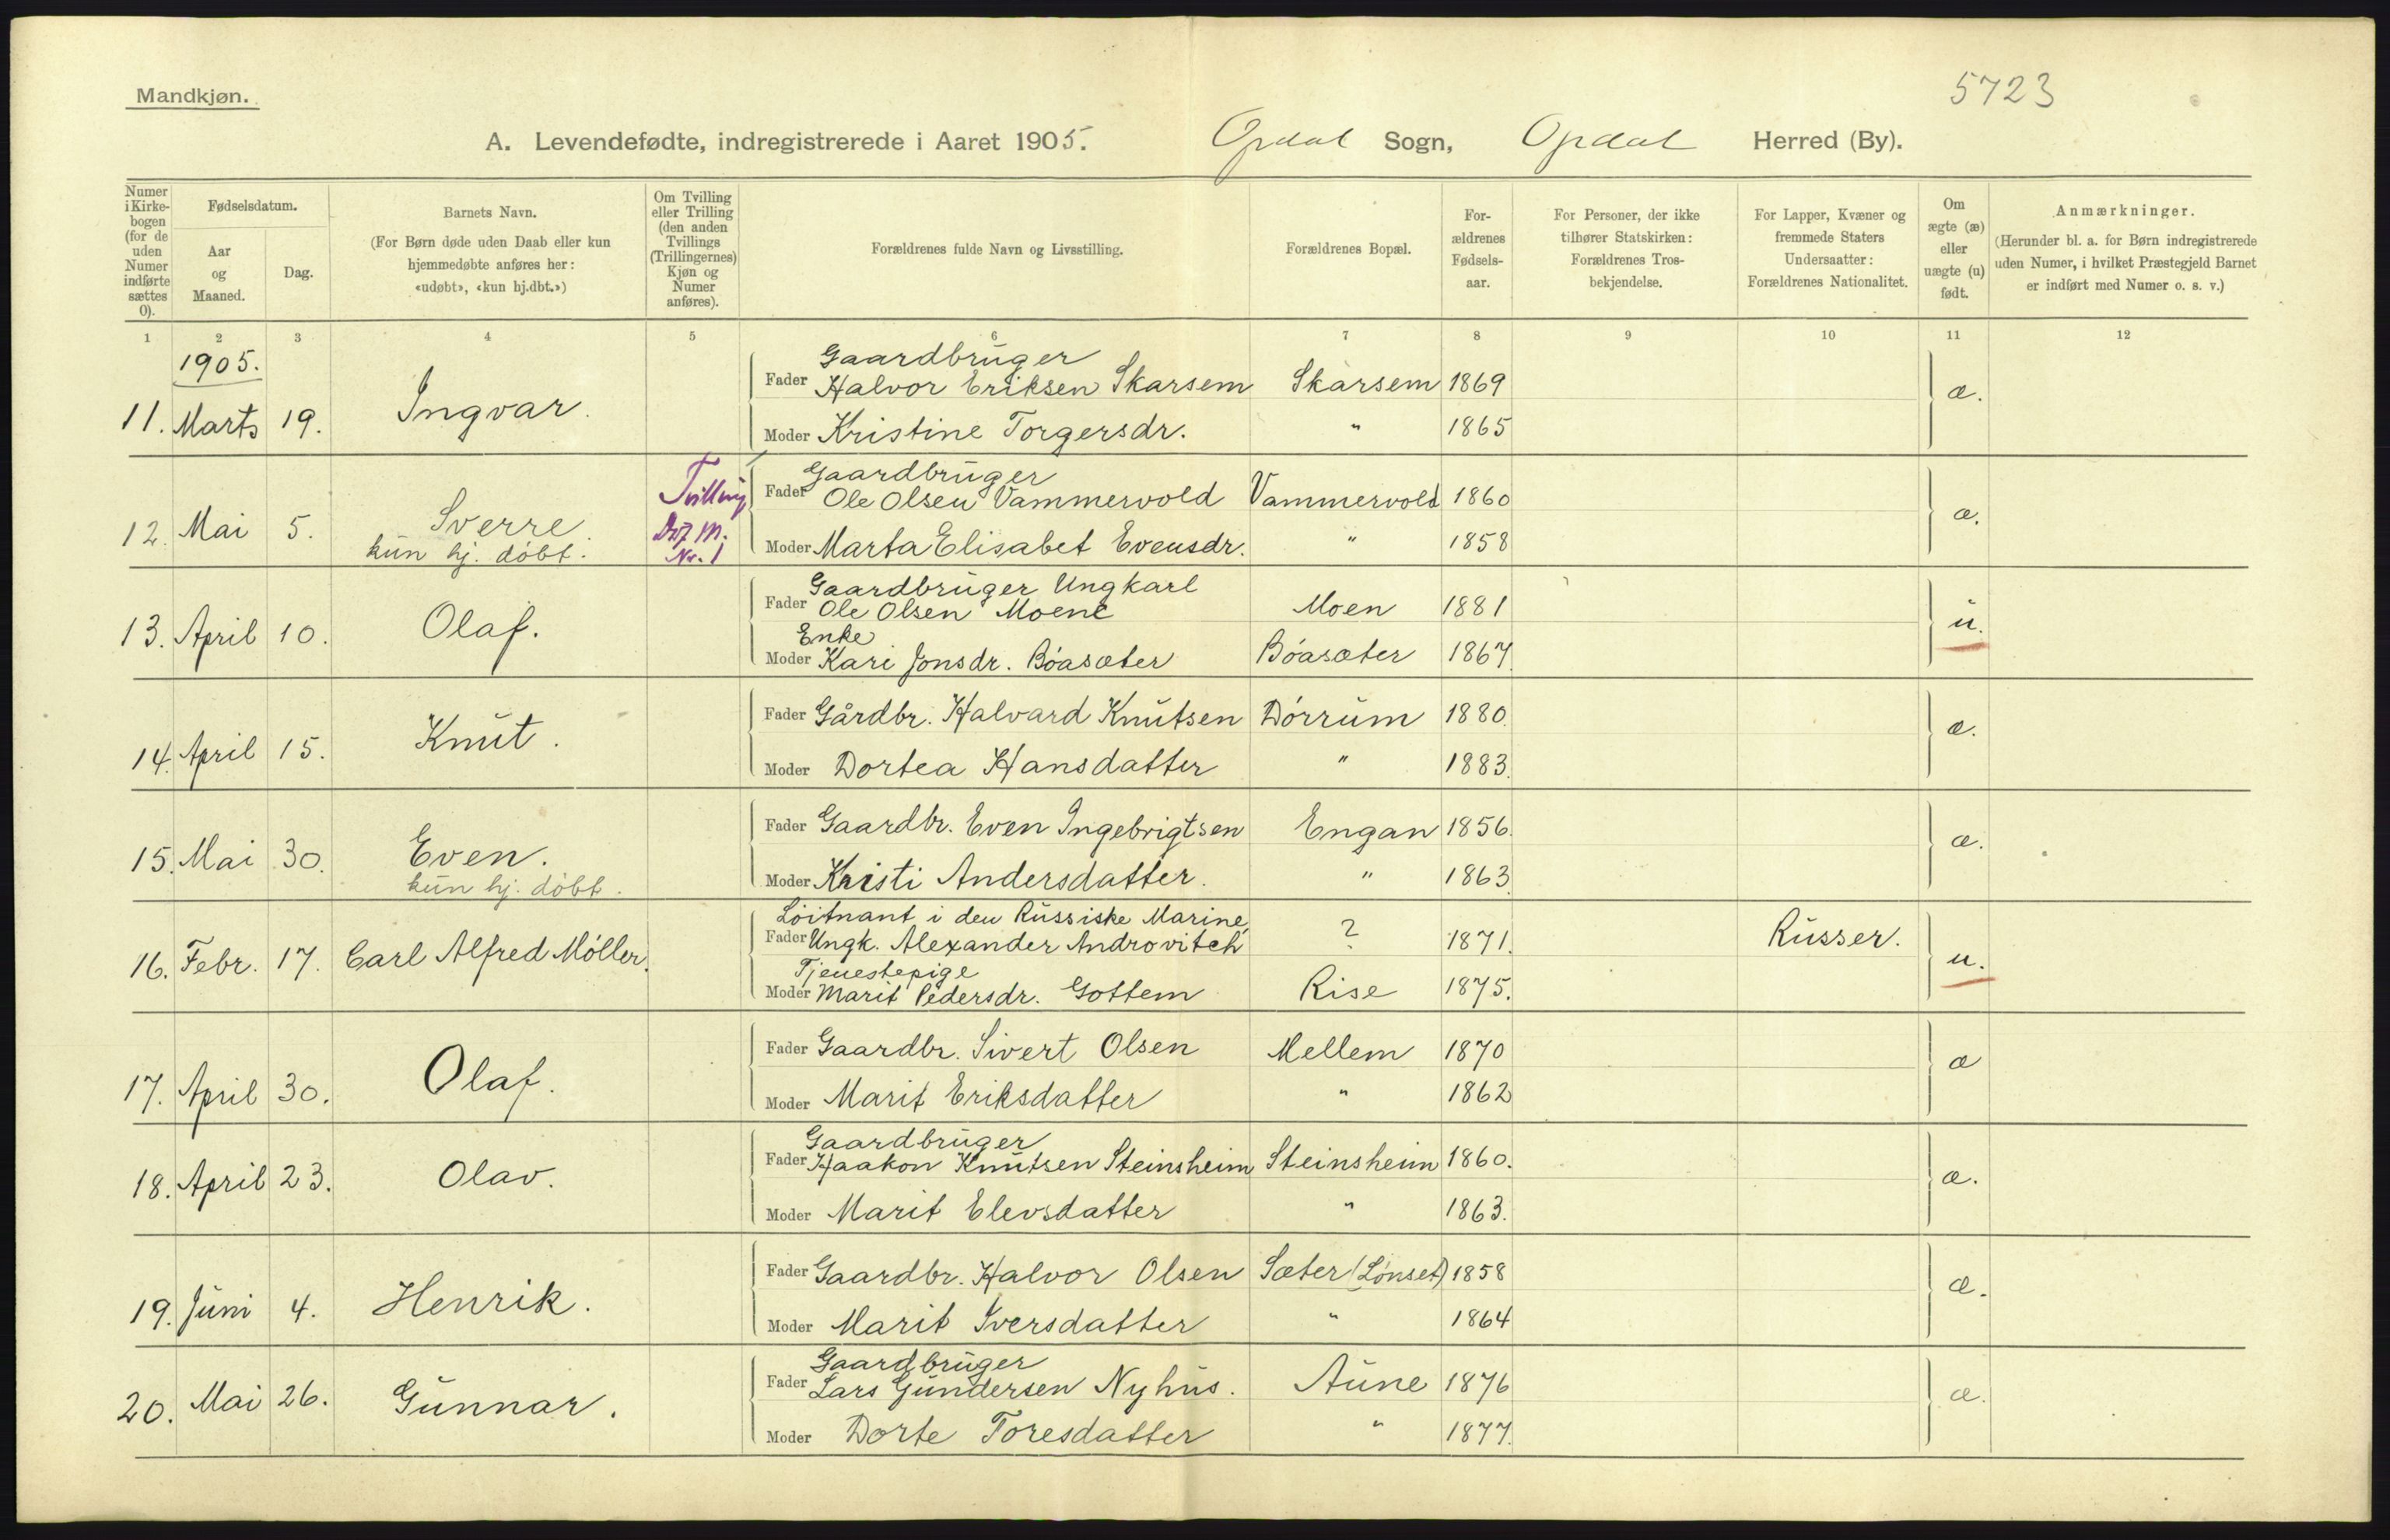 5723
Mandkjøn.
A. Levendefødte, indregistrerede i Aaret 1905. Opdal Sogn, Opdal Herred (By).
Numer i Kirke-bogen (for de uden Numer indførte sættes 0).
Fødselsdatum.
Aar og Maaned.
Dag.
Barnets Navn.
(For Børn døde uden Daab eller kun hjemmedøbte anføres her: «udøbt», «kun hj.dbt.»)
Om Tvilling eller Trilling (den anden Tvillings (Trillingernes) Kjøn og Numer anføres).
Forældrenes fulde Navn og Livsstilling.
Forældrenes Bopæl.
For-ældrenes Fødsels-aar.
For Personer, der ikke tilhører Statskirken: Forældrenes Tros-bekjendelse.
For Lapper, Kvæner og fremmede Staters Undersaatter: Forældrenes Nationalitet.
Om ægte (æ) eller uægte (u) født.
Anmærkninger.
(Herunder bl. a. for Børn indregistrerede uden Numer, i hvilket Præstegjeld Barnet er indført med Numer o. s. v.)
1 2 3 4 5 6 7 8 9 10 11 12
1905.
Gaardbruger
11. Marts 19. Ingvar. Fader Halvor Eriksen Skarsem Skarsem 1869 æ.
Moder Kristine Torgersdr. " 1865
Gaardbruger
12. Mai 5. Sverre Tvilling Fader Ole Olsen Vammervold Vammervold 1860 æ.
kun hj. døbt. M. Nr. 1 Moder Marta Elisabet Evensdr. " 1858
Gaardbruger Ungkarl
13. April 10. Olaf. Fader Ole Olsen Moene Moen 1881 u.
Enke
Moder Kari Jonsdr. Bøasæter Bøasæter 1867.
14. April 15. Knut. Fader Gårdbr. Halvard Knutsen Dørrum 1880. æ.
Moder Dortea Hansdatter " 1883.
15. Mai 30. Even. Fader Gaardbr. Even Ingebrigtsen Engan 1856. æ.
kun hj. døbt. Moder Kristi Andersdatter. " 1863.
Løitnant i den Russiske Marine,
16. Febr. 17. Carl Alfred Møller. Fader Ungk. Alexander Androvitch ? 1871. Russer. u.
Tjenestepige
Moder Marit Pedersdr. Gottem Rise 1875.
17. April 30. Olaf. Fader Gaardbr. Sivert Olsen Mellem 1870 æ
Moder Marit Eriksdatter " 1862
Gaardbruger
18. April 23. Olav. Fader Haakon Knutsen Steinsheim Steinsheim 1860. æ.
Moder Marit Elevsdatter " 1863.
19. Juni 4. Henrik. Fader Gaardbr. Halvor Olsen Sæter (Lønset) 1858 æ.
Moder Marit Iversdatter " 1864
Gaardbruger
20. Mai 26. Gunnar. Fader Lars Gundersen Nyhus. Aune 1876 æ.
Moder Dorte Toresdatter " 1877.